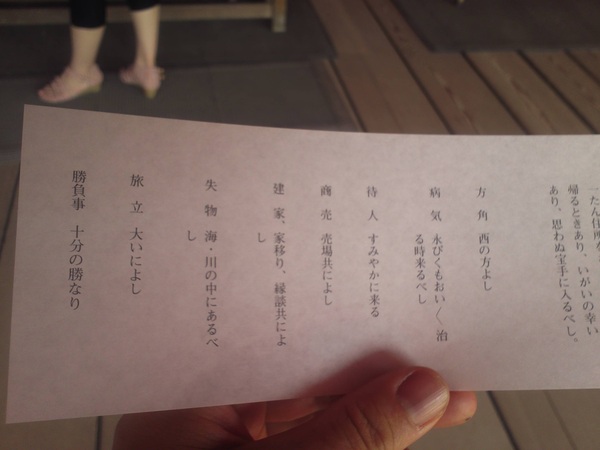 一たん住所を
帰るときあり、いがいの幸い
あり。思わぬ宝手に入るべし。
方　角　西の方よし
病　気　永びくもおい〱治
る時来るべし
待　人　すみやかに来る
商　売　売場共によし
建　家、家移り、縁談共によ
し
失　物　海・川の中にあるべ
し
旅　立　大いによし
勝負事　十分の勝なり